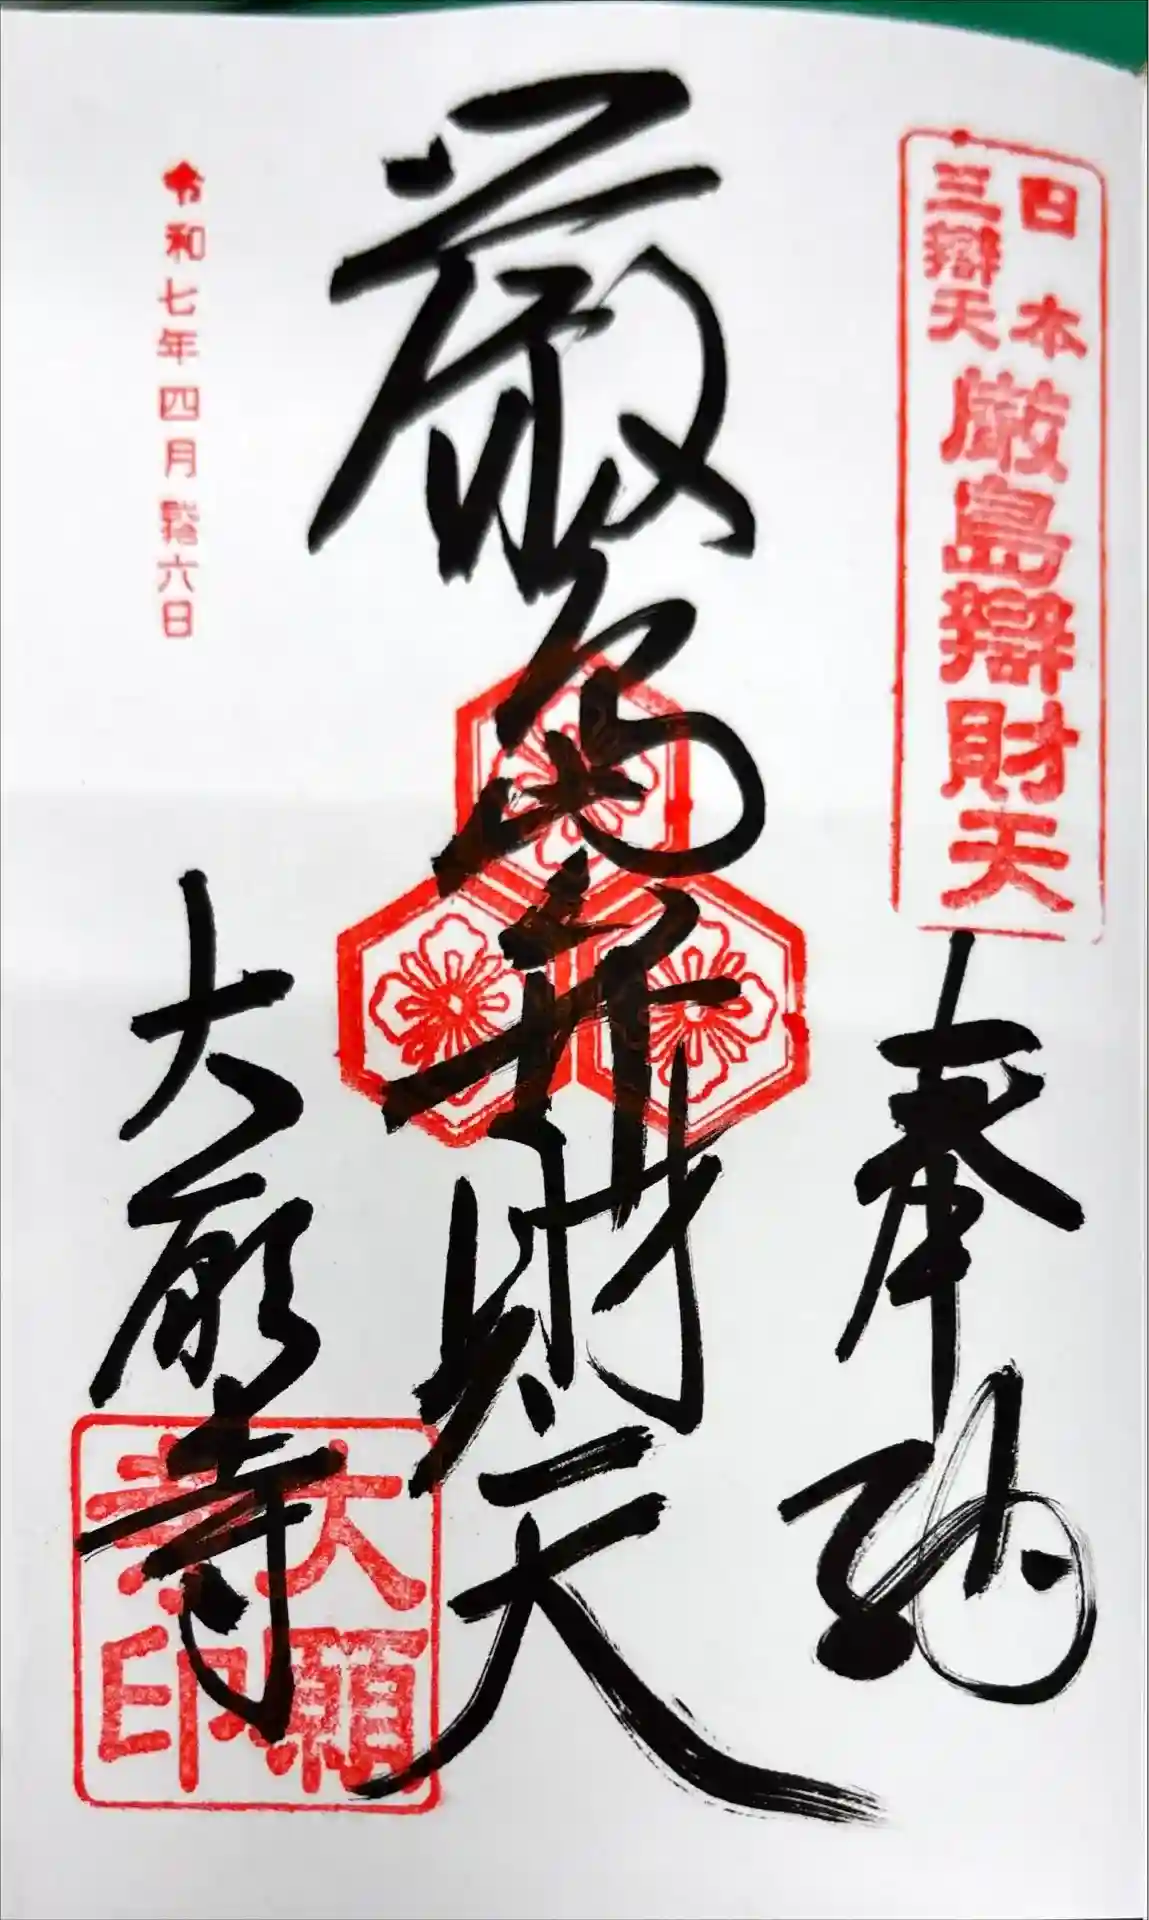 日本
三辯天
厳島辯財天
奉納
厳島弁財天
令和七年四月六日
大願寺
大願
寺印